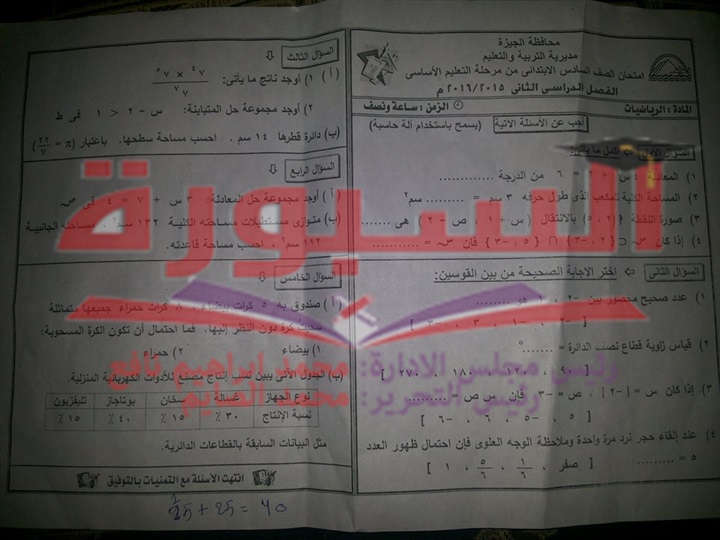 محافظة الجيزة
مديرية التربية والتعليم
امتحان الصف السادس الابتدائى من مرحلة التعليم الأساسى
الفصل الدراسى الثانى ٢٠١٦/٢٠١٥ م
المادة : الرياضيات
الزمن : ساعة ونصف
أجب عن الأسئلة الآتية (يسمح باستخدام آلة حاسبة)
السؤال الأول
١) المعادلة = ٦ من الدرجة
٢) المساحة الكلية لمكعب الذى طول حرفه ٣ سم = سم٢
٣) صورة النقطة (٢ ، ٥) بالانتقال (س + ١ ، ص - ٢) هى
٤) إذا كان
السؤال الثانى اختر الإجابة الصحيحة من بين القوسين:
١) عدد صحيح محصور بين -٢ ، ١ هو
٢) قياس زاوية قطاع نصف الدائرة =
[ ٩٠ ، ١٢٠ ، ١٨٠ ، ٢٧٠ ]
٣) إذا كان س = |-٢| ، ص = -٣ فإن س ص =
[ ٥ ، -٥ ، ٦ ، -٦ ]
٤) عند إلقاء حجر نرد مرة واحدة وملاحظة الوجه العلوى فإن احتمال ظهور العدد
٥ =
[ صفر ، ١/٦ ، ٥/٦ ، ١ ]
السؤال الثالث
(أ) ١) أوجد ناتج ما يأتى:
٢) أوجد مجموعة حل المتباينة: س - ٢ < ١ فى ط
(ب) دائرة قطرها ١٤ سم . احسب مساحة سطحها. باعتبار (π = ٢٢/٧)
السؤال الرابع
(أ) أوجد مجموعة حل المعادلة: ٣ س + ٧ = ٤ فى ص
(ب) متوازى مستطيلات مساحته الكلية ١٣٢ سم٢ ، مساحته الجانبية
١١٢ سم٢ ، احسب مساحة قاعدته.
السؤال الخامس
(أ) صندوق به ٥ كرات بيضاء ، كرات حمراء جميعها متماثلة
سحبت كرة دون النظر إليها. فما احتمال أن تكون الكرة المسحوبة:
١) بيضاء ٢) حمراء
(ب) الجدول الآتى يبين نسب إنتاج مصنع للأدوات الكهربائية المنزلية.
نوع الجهاز غسالة سخان بوتاجاز تليفزيون
نسبة الإنتاج ٣٠٪ ١٥٪ ٤٠٪ ١٥٪
مثل البيانات السابقة بالقطاعات الدائرية.
انتهت الأسئلة مع التمنيات بالتوفيق
السبورة
رئيس مجلس الادارة: محمد ابراهيم نافع
رئيس التحرير: محمد الدايم